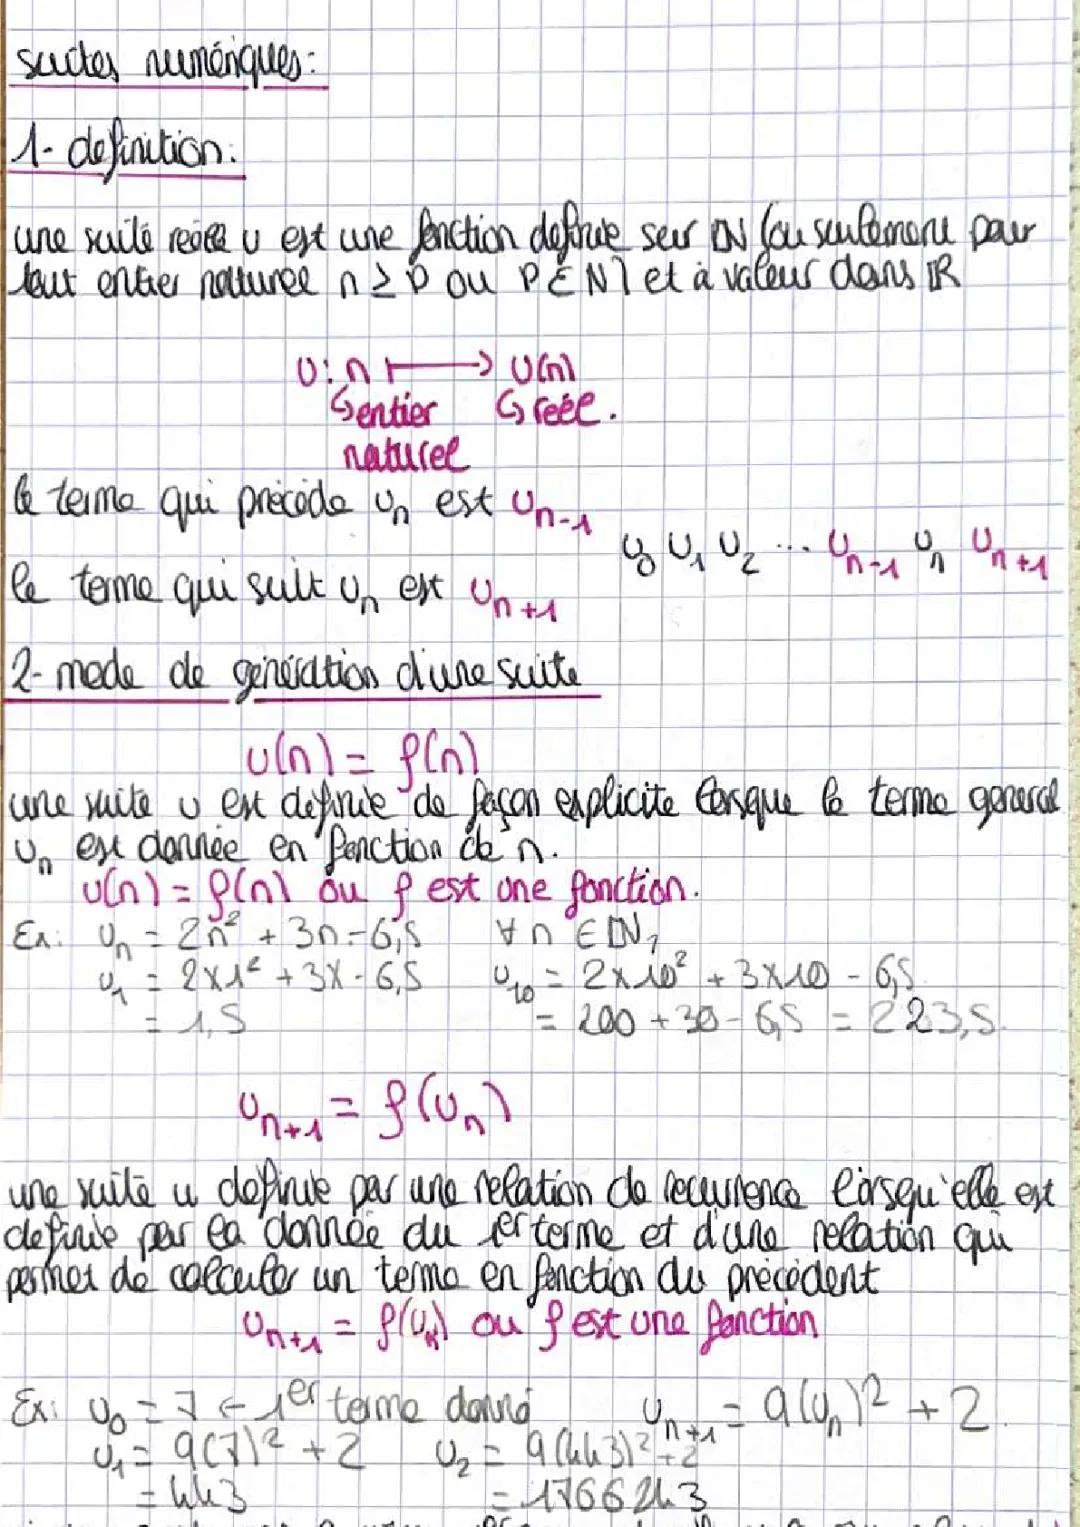 suites numériques:
1- definition:
une suite réelle u est une fonction definie sur ℕ (ou seulement pour
tout entier naturel n ≥ p ou p ∈ N) et à valeur dans ℝ
U: n ⟼ U(n)
↳ entier ↳ réel.
naturel
le terme qui précède Un est Un-1
U0 U1 U2 ... Un-1 Un Un+1
le terme qui suit Un est Un+1
2- mode de génération d'une suite
U(n) = f(n)
une suite u est définie de façon explicite lorsque le terme general
Un est donnée en fonction de n.
U(n) = f(n) ou f est une fonction.
Ex: Un = 2n² + 3n - 6,5 ∀ n ∈ ℕ,
U1 = 2x1² + 3x - 6,5 U10 = 2x10² + 3x10 - 6,5
= 1,5 = 200 + 30 - 6,5 = 223,5
Un+1 = f(Un)
une suite u définie par une relation de recurrence lorsqu'elle est
définie par la donnée du 1er terme et d'une relation qui
permet de calculer un terme en fonction du précédent
Un+1 = f(Un) ou f est une fonction
Ex: U0 = 7 ← 1er terme donné Un+1 = 9(Un)² + 2.
U1 = 9(7)² + 2 U2 = 9(443)² + 2
= 443 = 1766243